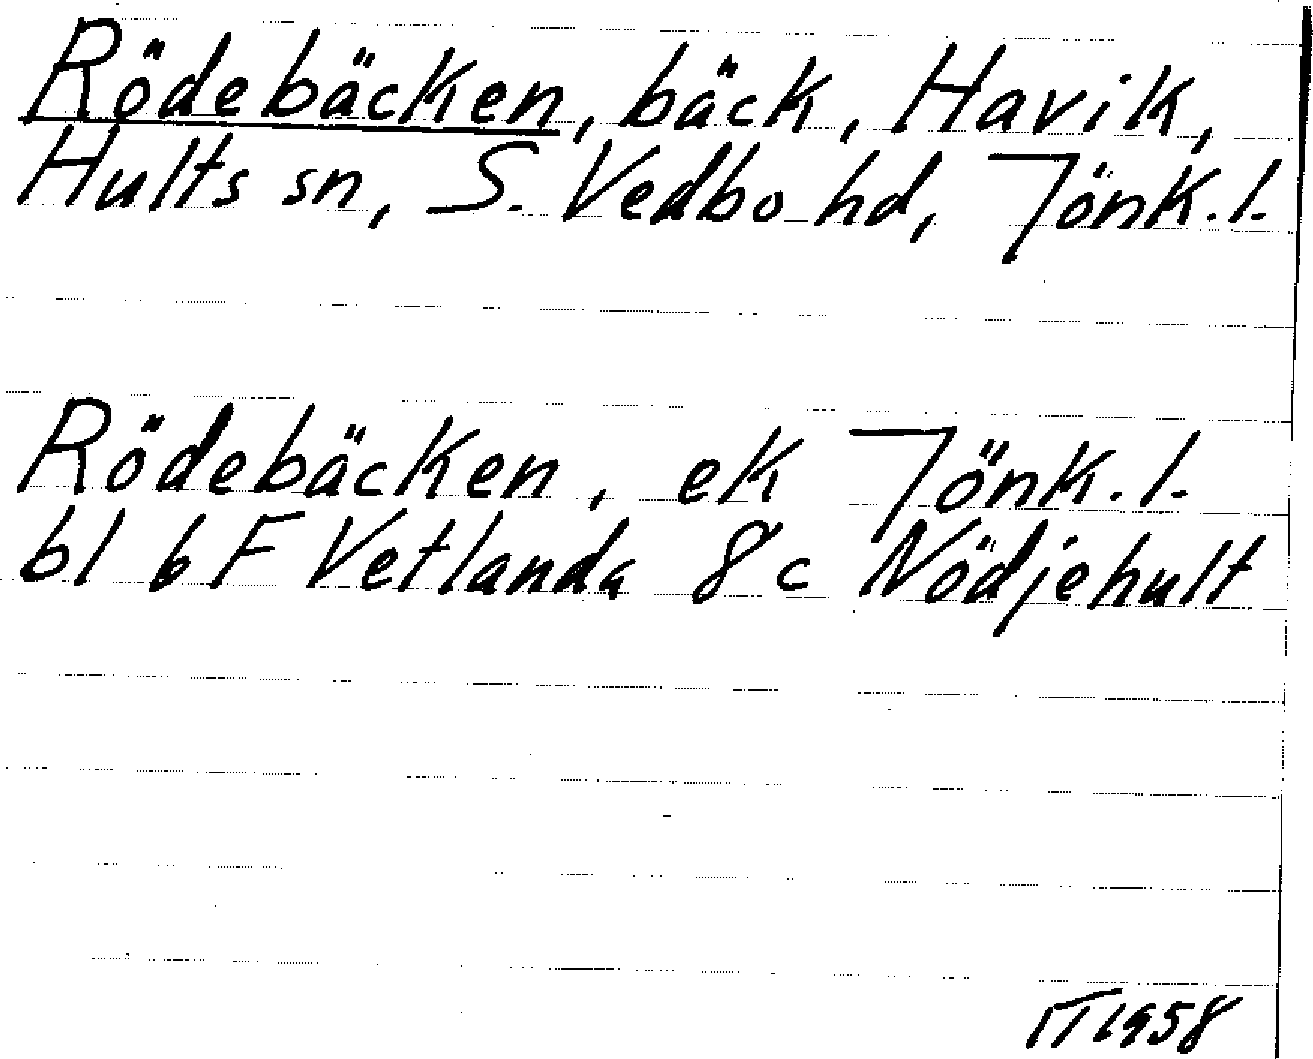 Rödebäcken, bäck, Havik,
Hults sn, S. Vedbo hd, Jönk. l.
Rödebäcken, ek Jönk. l.
bl 6 F Vetlanda 8 c Nödjehult
1958